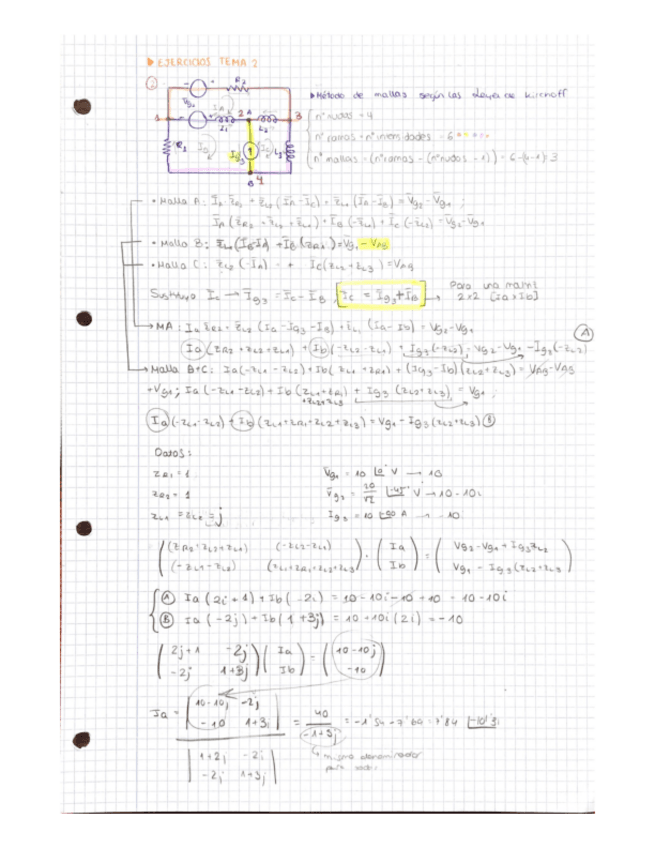 ▶ EJERCICIOS TEMA 2
②
R2
▶ Método de mallas según las Leyes de Kirchoff
nº nudos = 4
nº ramas = nº intensidades = 6
nº mallas = (nº ramas - (nº nudos - 1)) = 6-(4-1) = 3
• Malla A: IA·ZR2 + ZL2 (IA-IC) + ZL1 (IA-IB) = Vg2-Vg1 ;
IA (ZR2 + ZL2 + ZL1) + IB (-ZL1) + IC (-ZL2) = Vg2-Vg1
• Malla B: ZL1 (IB-IA) + IB (ZR1) = Vg1 - VAB
• Malla C: ZL2 (-IA) + IC (ZL2+ZL3) = VAB
Sustituyo IC → Ig3 = IC - IB , IC = Ig3 + IB → Para una matriz
2x2 [Ia, Ib]
→ MA: Ia ZR2 + ZL2 (Ia - Ig3 - IB) + ZL1 (Ia - Ib) = Vg2-Vg1
Ⓐ
Ia (ZR2 + ZL2 + ZL1) + Ib (-ZL2 - ZL1) + Ig3 (-ZL2) = Vg2 - Vg1 - Ig3 (-ZL2)
→ Malla B+C: Ia (-ZL1 - ZL2) + Ib (ZL1 + ZR1) + (Ig3 - Ib) (ZL2+ZL3) = VAB - VAB
+ Vg1 ; Ia (-ZL1 - ZL2) + Ib (ZL1 + ZR1 + ZL2 + ZL3) + Ig3 (ZL2+ZL3) = Vg1 ,
Ia (-ZL1 - ZL2) + Ib (ZL1 + ZR1 + ZL2 + ZL3) = Vg1 - Ig3 (ZL2+ZL3) Ⓑ
Datos:
ZR1 = 1 Vg1 = 10 ∠0 V → 10
ZR2 = 1 Vg2 = 20/√2 ∠-45 V → 10 - 10i
ZL1 = ZL2 = j Ig3 = 10 ∠-90 A → -10
( (ZR2 + ZL2 + ZL1) (-ZL2 - ZL1) ) · ( Ia ) = ( Vg2 - Vg1 + Ig3 ZL2 )
( (-ZL1 - ZL2) (ZL1 + ZR1 + ZL2 + ZL3) ) ( Ib ) ( Vg1 - Ig3 (ZL2+ZL3) )
Ⓐ Ia (2i + 1) + Ib (-2i) = 10 - 10i - 10 + 10 = 10 - 10i
Ⓑ Ia (-2j) + Ib (1 + 3j) = 10 + 10i (2i) = -10
( 2j + 1 -2j ) ( Ia ) = ( 10 - 10j )
( -2j 1+3j ) ( Ib ) ( -10 )
Ia = | 10-10j -2j |
| -10 1+3i | = 40 / -1+5j = -1'54 - 7'69 = 7'84
| 1+2j -2i |
| -2j 1+3j |
mismo denominador
para todas